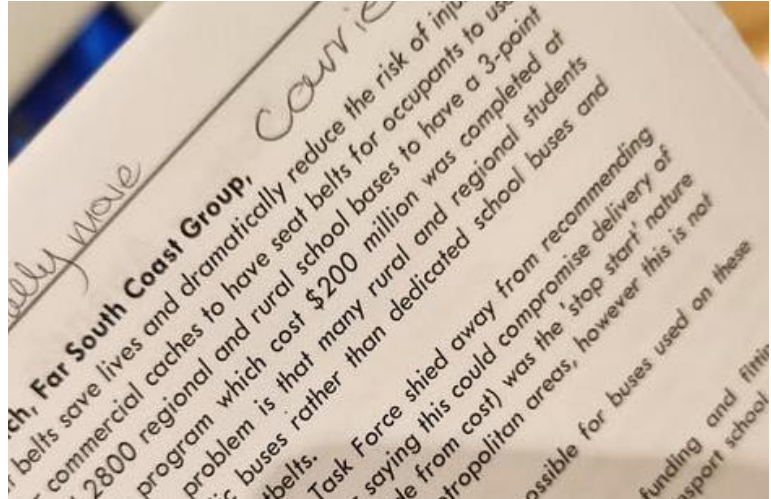 move
Far South Coast Group,
belts save lives and dramatically reduce the risk of
commercial caches to have seat belts for occupants to use
2800 regional and rural school bases to have a 3-point
program which cost $200 million was completed at
problem is that many rural and regional students
buses rather than dedicated school buses and
Task Force shied away from recommending
saying this could compromise delivery of
from cost) was the 'stop start' nature
areas, however this is not
for buses used on these
funding and
school